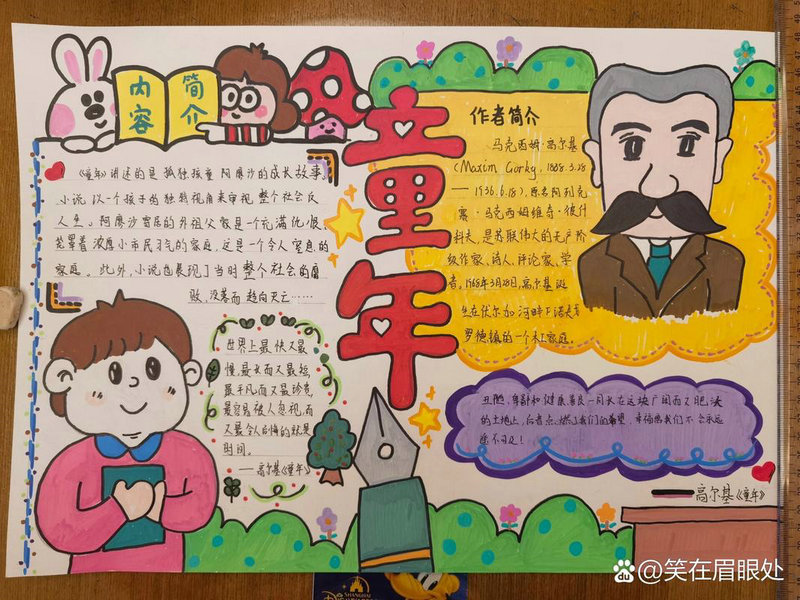 内容
简介
童年
《童年》讲述的是孤独孩童阿廖沙的成长故事。
小说以一个孩子的独特视角来审视整个社会及
人生。阿廖沙寄居的外祖父家是一个充满仇恨,
笼罩着浓厚小市民习气的家庭,这是一个令人窒息的
家庭。此外,小说也展现了当时整个社会的腐
败,没落而趋向灭亡……
世界上最快又最
慢,最长而又最短
最平凡而又最珍贵
最容易被人忽视,而
又最令人后悔的就是
时间。
——高尔基《童年》
作者简介
马克西姆·高尔基
(Maxim Gorky, 1868.3.28
— 1936.6.18),原名阿列克
赛·马克西姆维奇·彼什
科夫,是苏联伟大的无产阶
级作家、诗人、评论家、学
者。1868年3月28日,高尔基诞
生在伏尔加河畔下诺夫
罗德镇的一个木工家庭
丑陋,卑鄙和健康善良一同长在这块广阔而又肥沃
的土地上,后者点燃了我们的希望,幸福离我们不会永远
遥不可及!
——高尔基《童年》
SHANGHAI
Baidu @笑在眉眼处